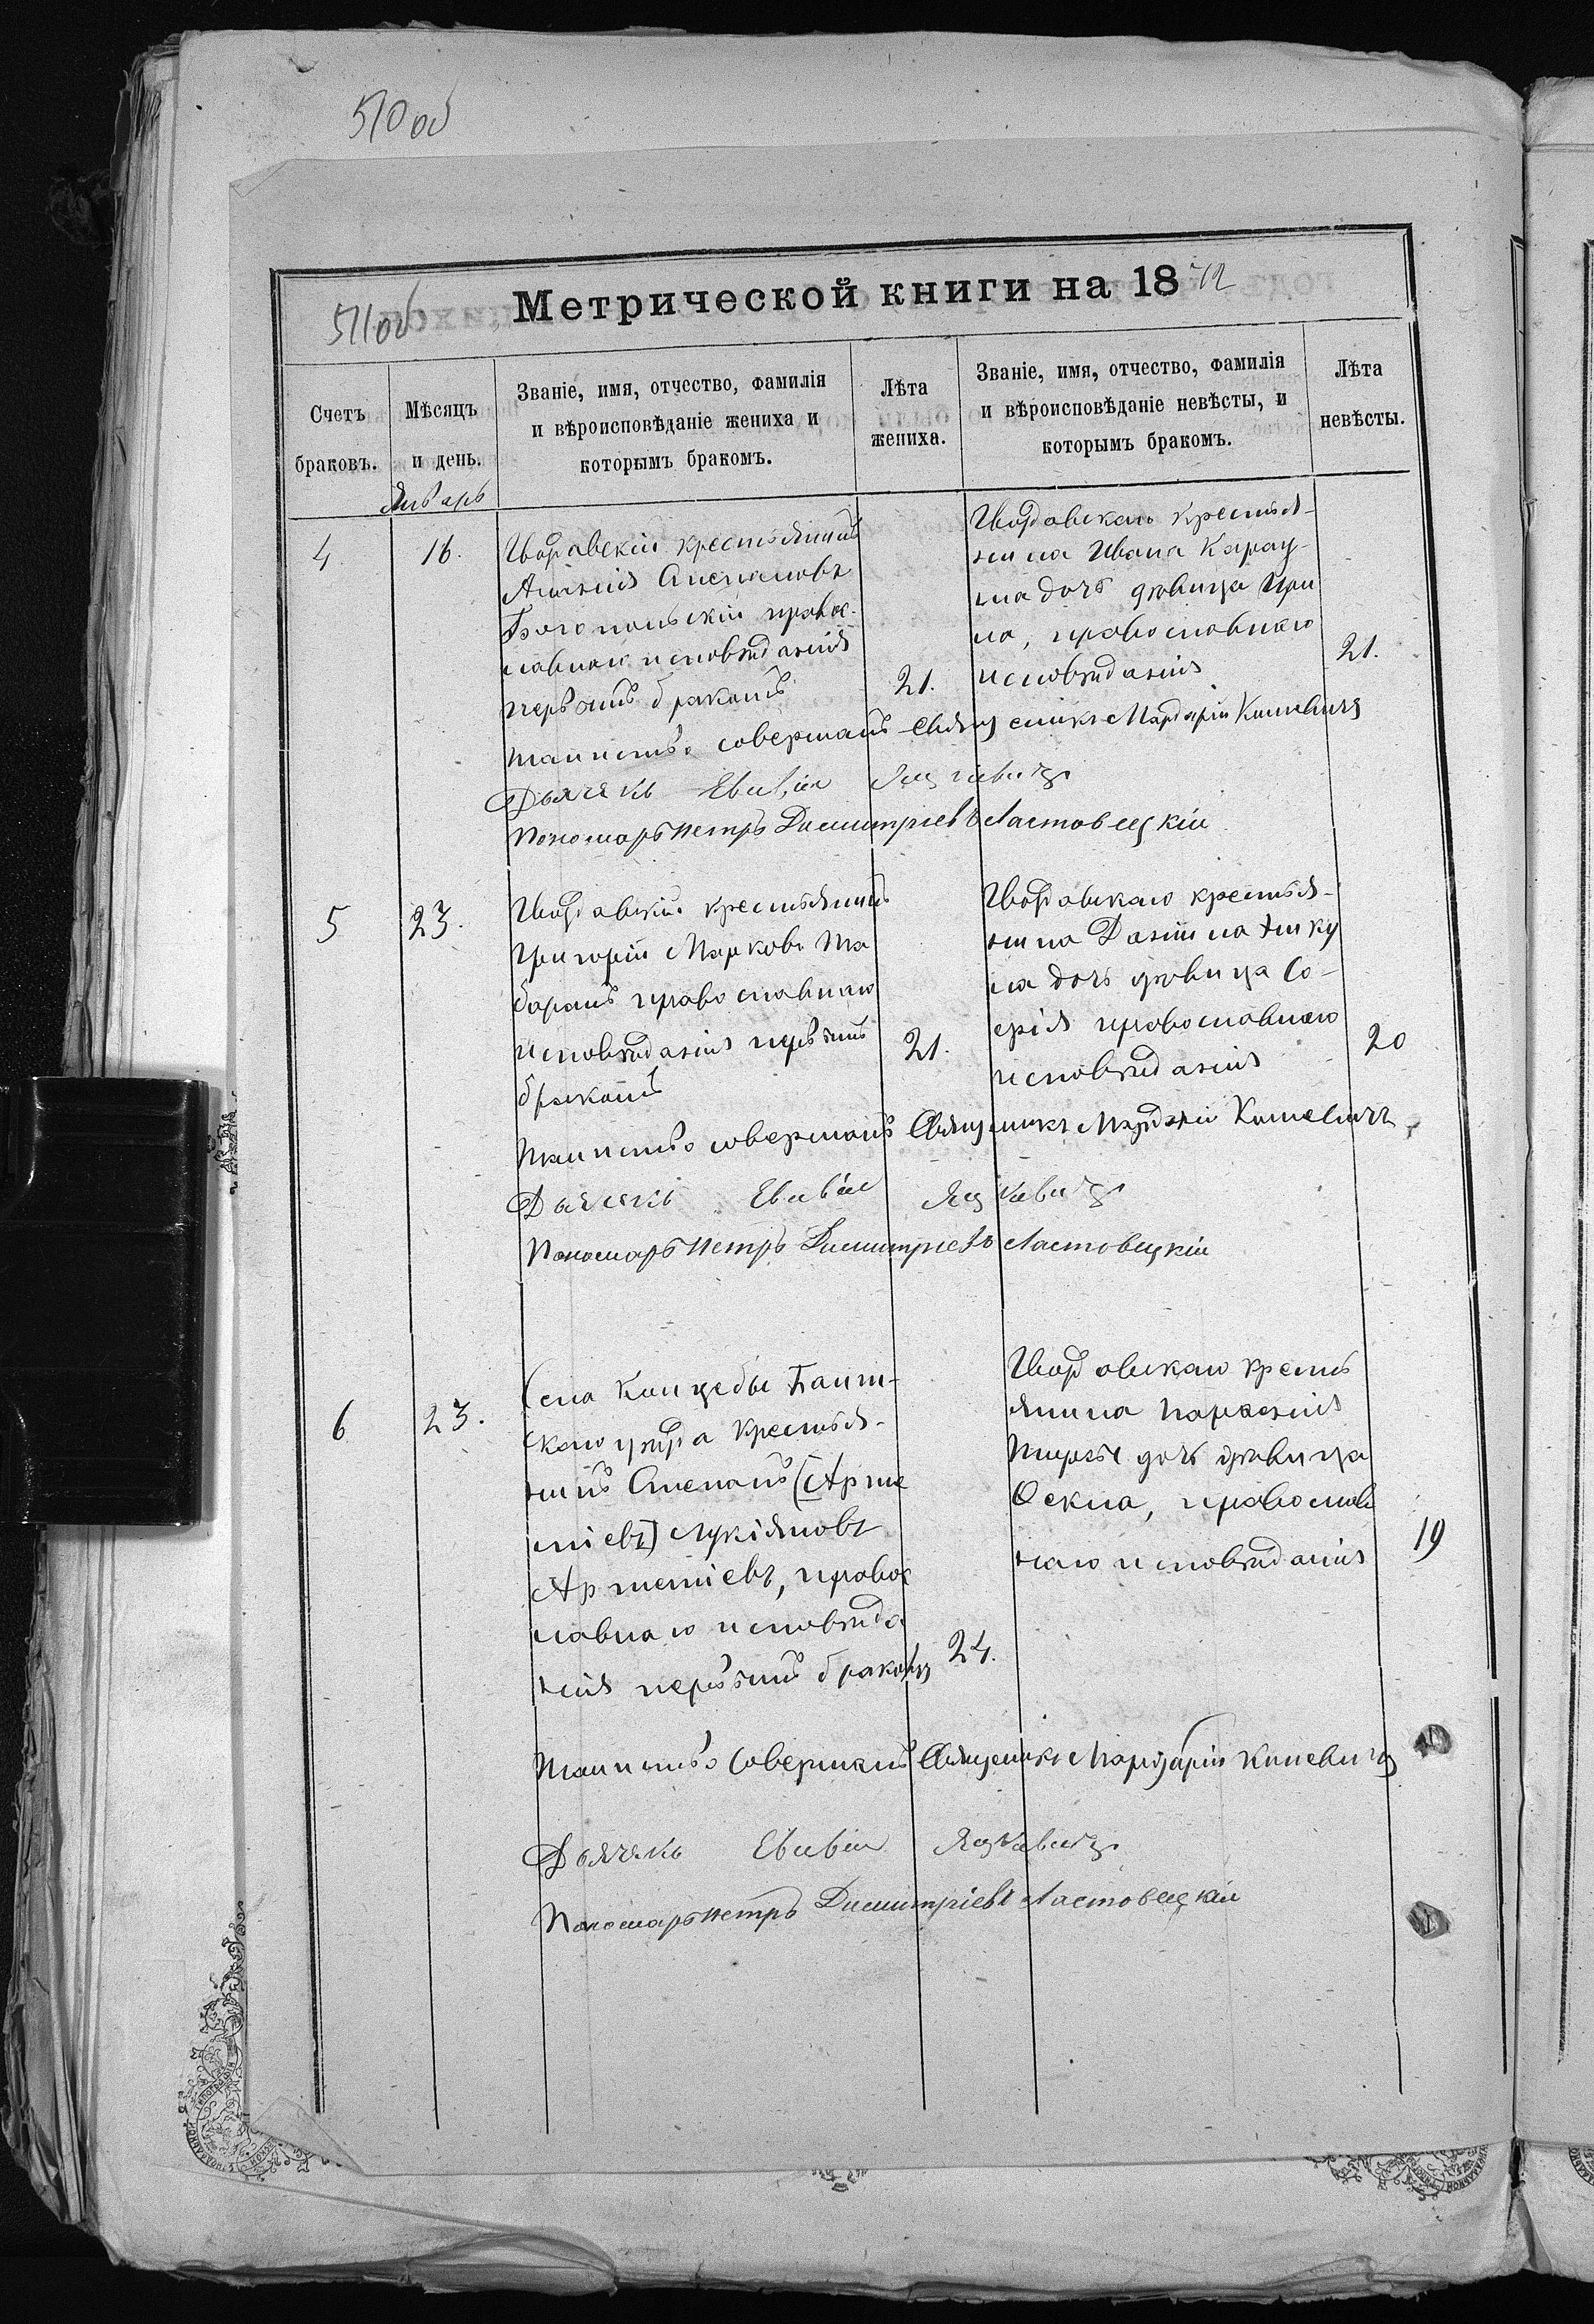 510 об
511 об
Метрической книги на 1872
Счетъ браковъ.
Мѣсяцъ и день.
Званіе, имя, отчество, фамилія и вѣроисповѣданіе жениха и которымъ бракомъ.
Лѣта жениха.
Званіе, имя, отчество, фамилія и вѣроисповѣданіе невѣсты, и которымъ бракомъ.
Лѣта невѣсты.
Январь
4
16.
крестьянинъ
Степановъ
Богопольскій правос-
лавнаго исповѣданія
первымъ бракомъ
21.
крестья-
нина Ивана Карау-
ла дочь дѣвица Ири
на, православнаго
исповѣданія
21.
таинство совершалъ Священикъ Мардарій Кипевичъ
Дьячекъ Евфвій
Пономарь Петръ Димитріевъ Ластовецкій
5
23.
крестьянинъ
Григорій Марковъ Та
баранъ православнаго
исповѣданія первымъ
бракомъ
21.
крестья-
нина Даніила
ла дочь дѣвица Со-
фія православнаго
исповѣданія
20
таинство совершалъ Священикъ Мардарій Кипевичъ
Дьячекъ
Пономарь Петръ Димитріевъ Ластовецкій
6
23.
Села Концебы Балт-
скаго уѣзда крестья-
нинъ Степанъ (Арте
міевъ) Лукіяновъ
Артеміевъ, правос
лавнаго исповѣда
нія первымъ бракомъ
24.
кресть
янина
дочь дѣвица
Фекла, православ
наго исповѣданія
19
таинство совершалъ Священикъ Мардарій Кипевичъ
Дьячекъ
Пономарь Петръ Димитріевъ Ластовецкій